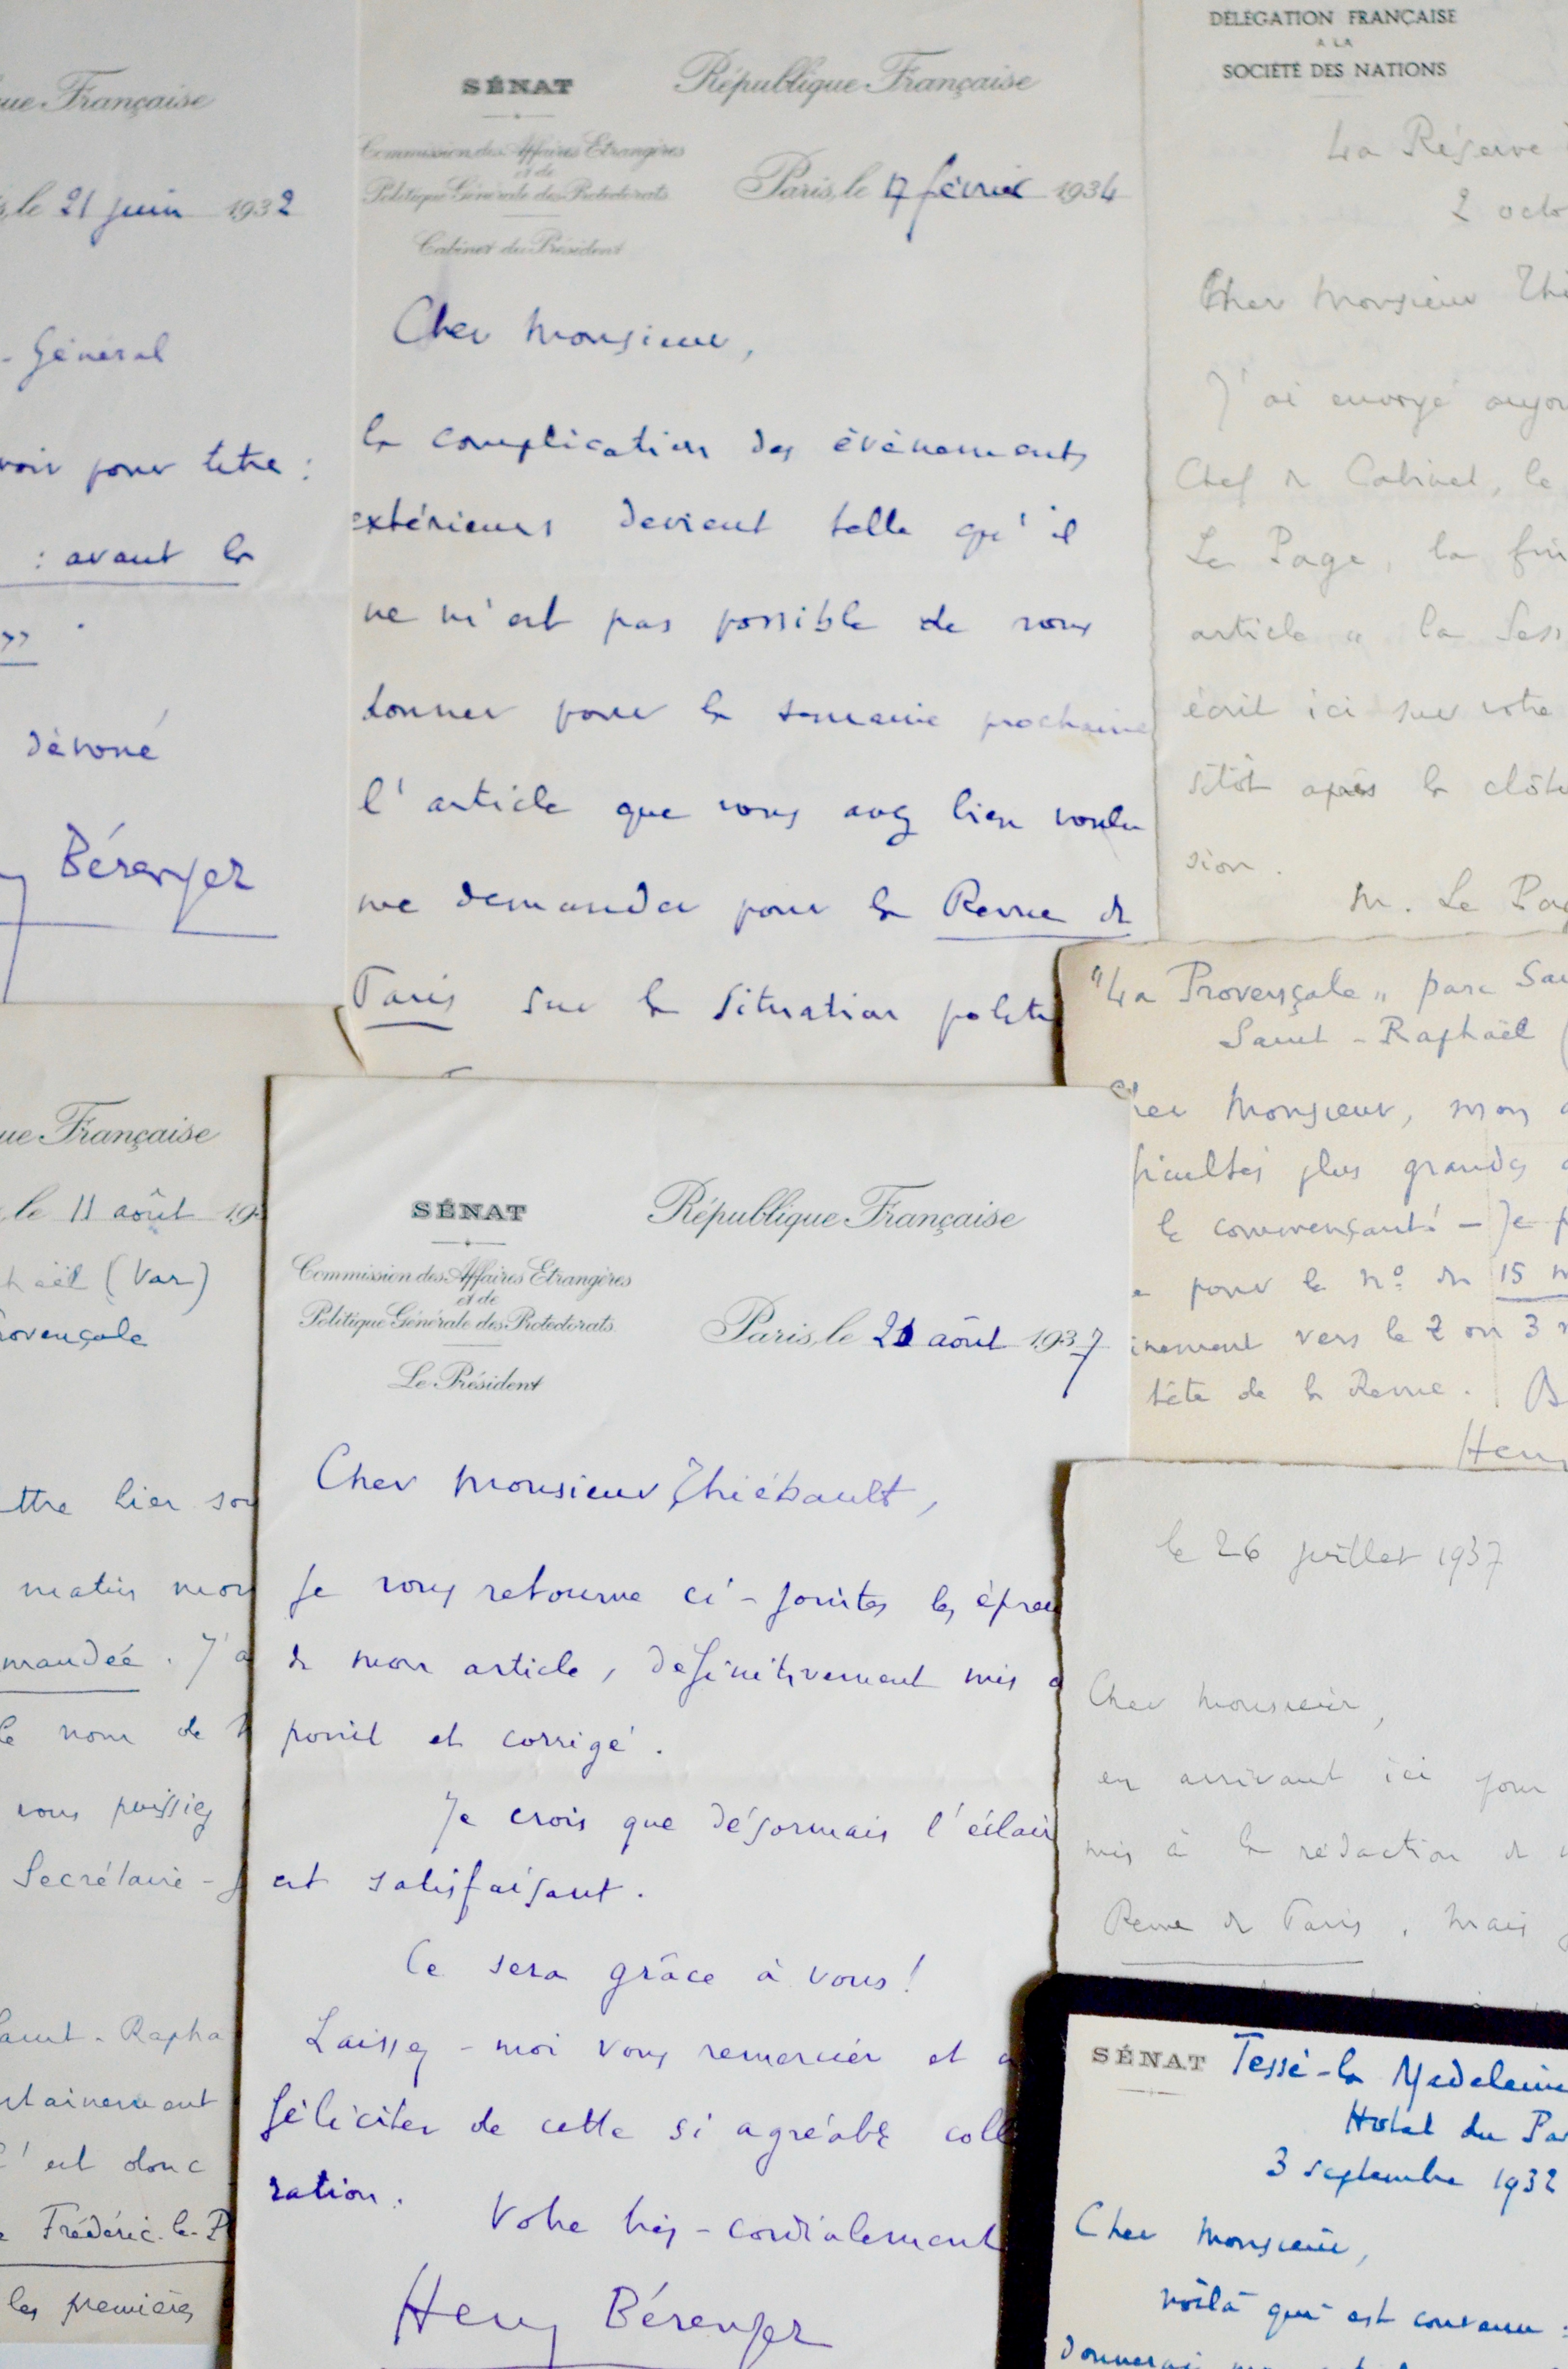 ue Française
le 21 juin 1932
- Général
voir pour titre :
: avant la
»
dévoué
Bérenger
SÉNAT
République Française
Commission des Affaires Etrangères
et de
Politique Générale des Protectorats
Cabinet du Président
Paris, le 17 février 1934
Cher Monsieur,
la complication des évènements
extérieurs devient telle qu'il
ne m'est pas possible de vous
donner pour la semaine prochaine
l'article que vous avez bien voulu
me demander pour la Revue de
Paris sur la situation polit
DÉLÉGATION FRANÇAISE
A LA
SOCIÉTÉ DES NATIONS
La Réserve
2 octo
Cher Monsieur Thi
J'ai envoyé aujou
Chef de Cabinet, le
Le Page, la fin
article " la Sess
écrit ici sur votre
sitôt après la clôtu
sion.
M. Le Pag
"La Provençale" parc Sai
Saint-Raphaël (
Cher Monsieur, mon
ficultés plus grandes
le commençant! - Je p
pour le nº du 15 m
inement vers le 2 ou 3
tête de la Revue. B
Hen
ue Française
le 11 août 19
haël (Var)
rovençale
ttre hier soi
matin mon
mandée. J'a
le nom de
vous puissiez
Secrétaire - g
Saint-Rapha
rtainement
C'est donc
Frédéric-le-P
les premières
SÉNAT
République Française
Commission des Affaires Etrangères
et de
Politique Générale des Protectorats
Le Président
Paris, le 21 août 1937
Cher Monsieur Thiébault,
Je vous retourne ci-jointes les épreu
de mon article, définitivement mis a
point et corrigé.
Je crois que désormais l'éclair
est satisfaisant.
Ce sera grâce à vous!
Laissez-moi vous remercier et
féliciter de cette si agréable coll
ration.
Votre très-cordialement
Henry Bérenger
le 26 juillet 1937
Cher Monsieur,
en arrivant ici pour
mis à la rédaction de
Revue de Paris. Mais
SÉNAT
Tessé-la Madeleine
Hotel du Pa
3 septembre 1932
Cher Monsieur,
voilà qui est convenu :